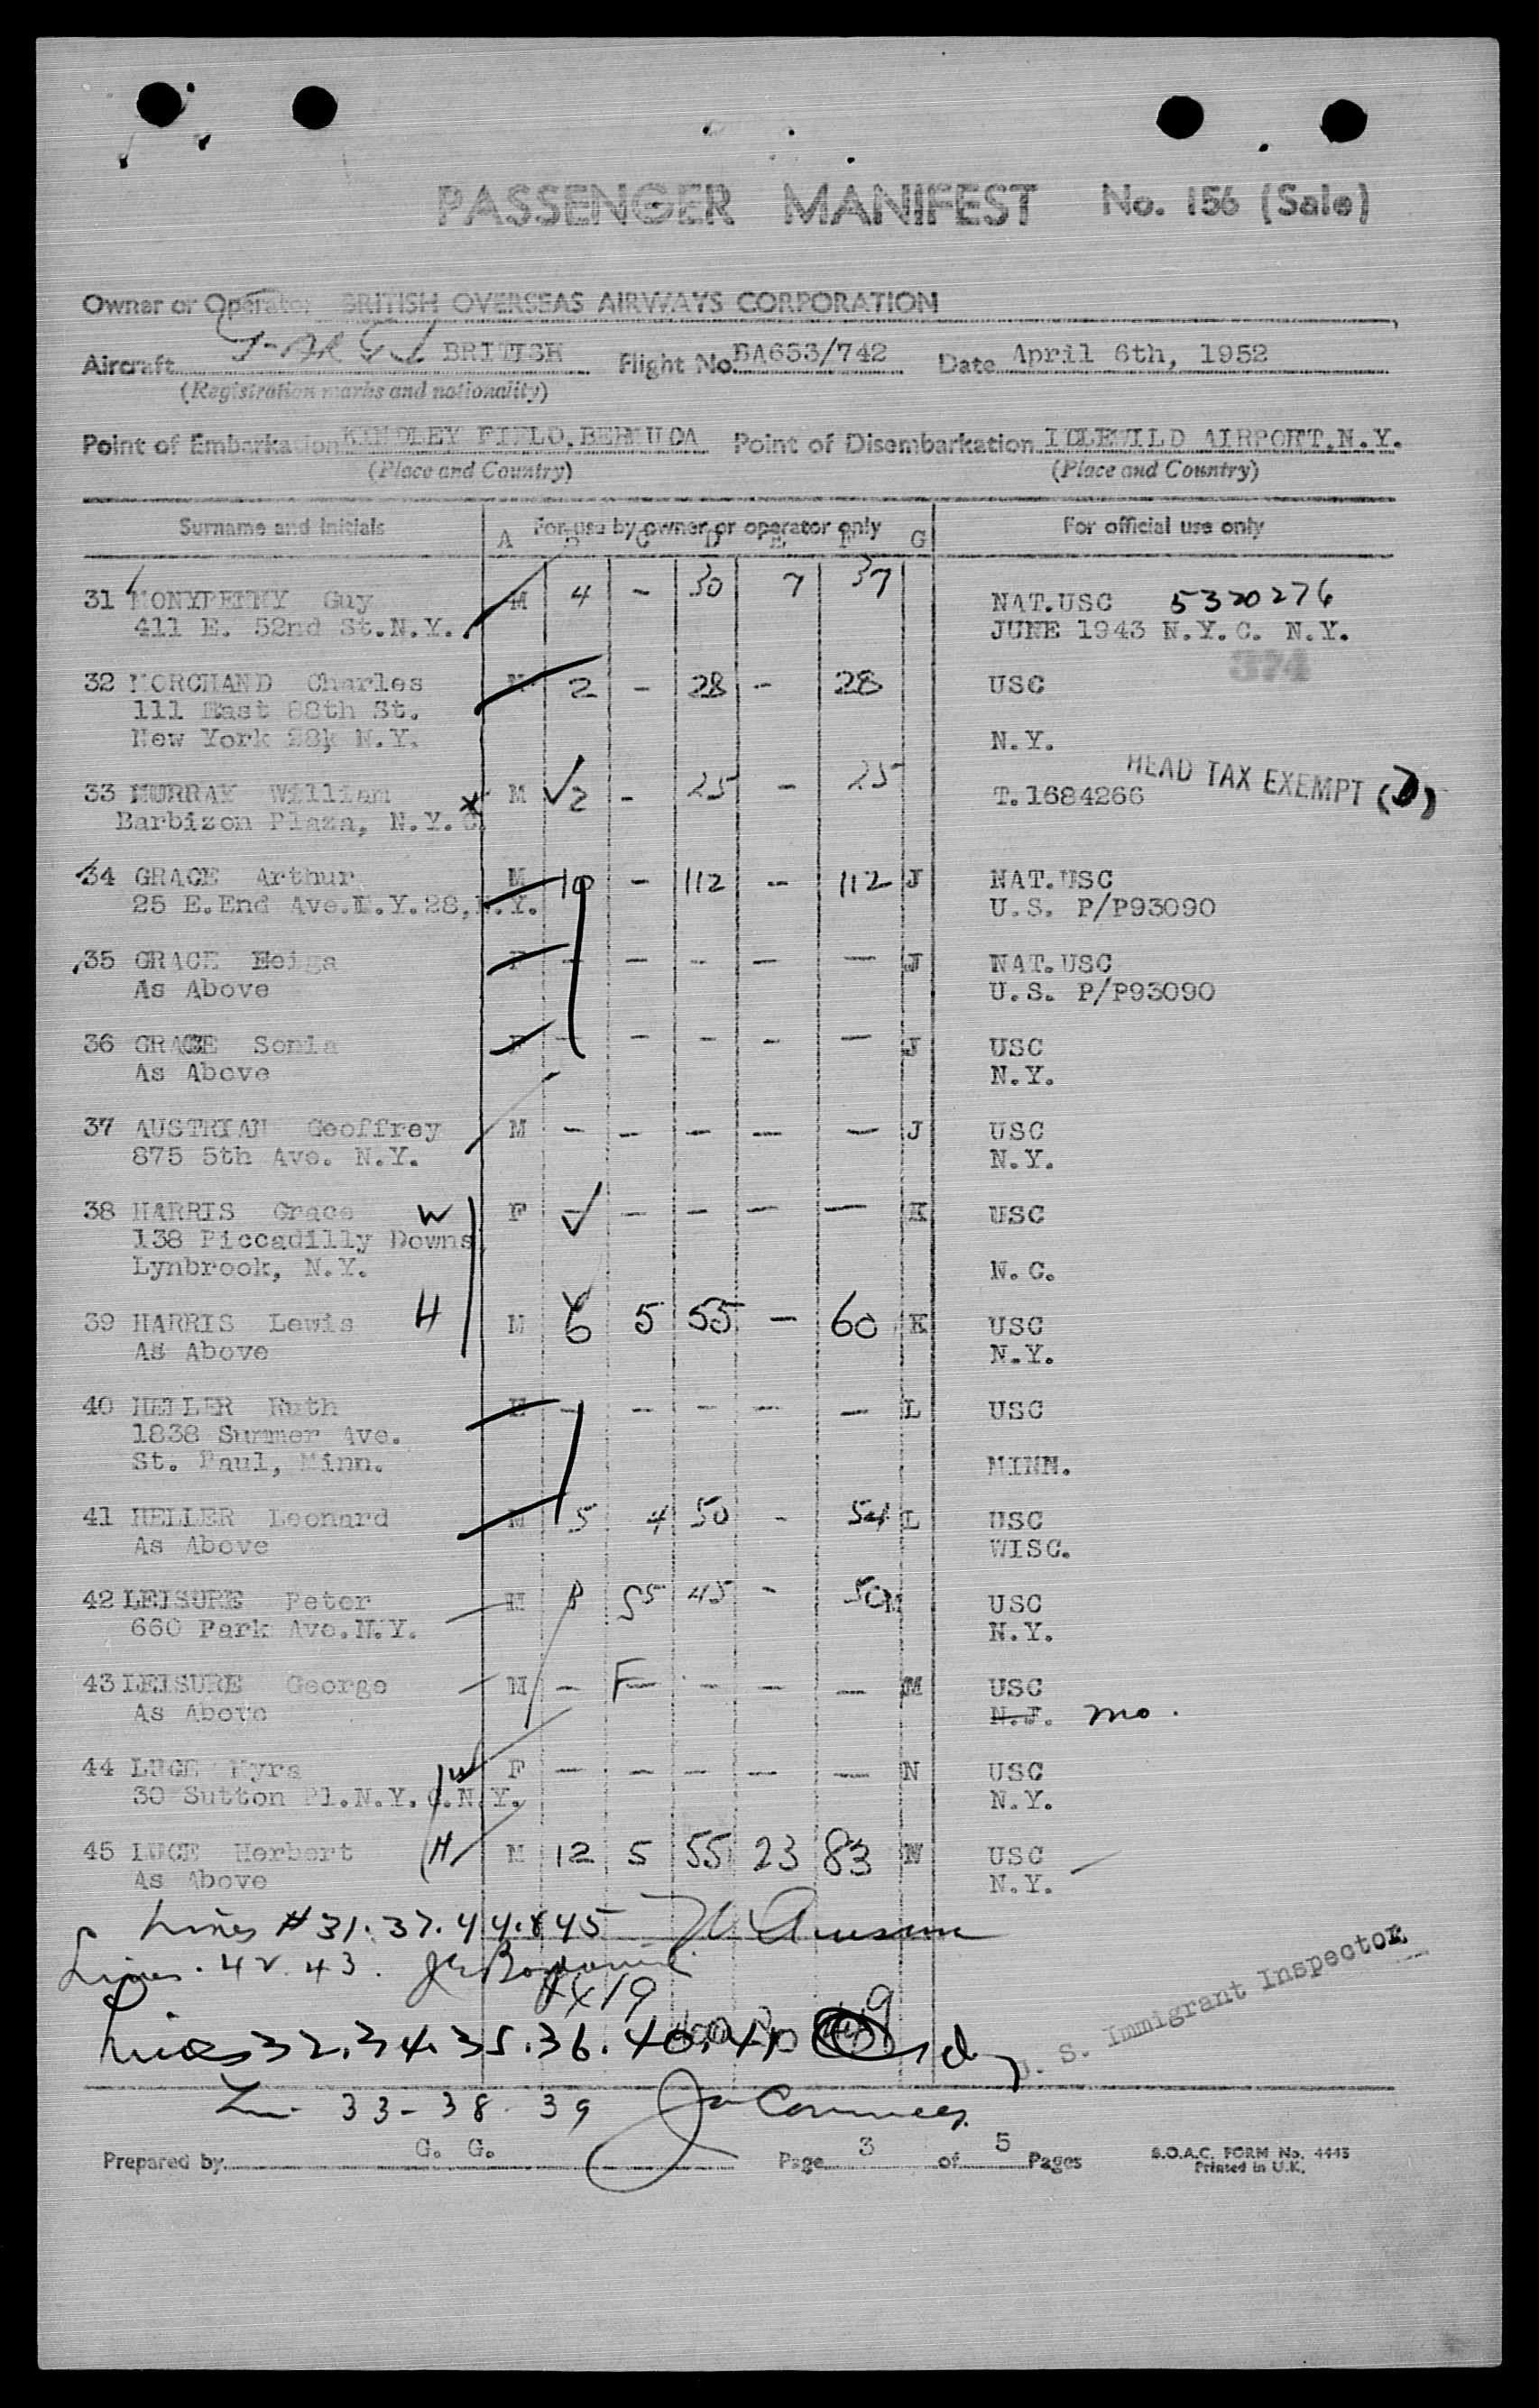 PASSENGER MANIFEST No. 156 (Sale)
Owner or Operator BRITISH OVERSEAS AIRWAYS CORPORATION
Aircraft BRITISH Flight No. BA653/742 Date April 6th, 1952
(Registration marks and nationality)
Point of Embarkation KINDLEY FIELD, BERMUDA Point of Disembarkation IDLEWILD AIRPORT, N.Y.
(Place and Country) (Place and Country)
Surname and initials For use by owner or operator only For official use only
A B C D E F G
31 MONYPENNY Guy M 4 - 30 7 37 NAT.USC 5320276
411 E. 52nd St.N.Y. JUNE 1943 N.Y.C. N.Y.
374
32 MORCHAND Charles M 2 - 28 - 28 USC
111 East 88th St.
New York 28, N.Y. N.Y.
HEAD TAX EXEMPT
33 MURRAY William M 2 - 25 - 25 T.1684266
Barbizon Plaza, N.Y.C.
34 GRACE Arthur M 10 - 112 - 112 J NAT.USC
25 E.End Ave.N.Y.28,N.Y. U.S. P/P93090
35 GRACE F - - - - - J NAT.USC
As Above U.S. P/P93090
36 GRACE Sonia F - - - - - J USC
As Above N.Y.
37 AUSTRIAN Geoffrey M - - - - - J USC
875 5th Ave. N.Y. N.Y.
38 HARRIS Grace W F - - - - - K USC
138 Piccadilly Downs,
Lynbrook, N.Y. N.C.
39 HARRIS Lewis H M 6 5 55 - 60 K USC
As Above N.Y.
40 HELLER Ruth F - - - - - L USC
1838 Summer Ave.
St. Paul, Minn. MINN.
41 HELLER Leonard M 5 4 50 - 54 L USC
As Above WISC.
42 LEISURE Peter M 5 45 - 50 M USC
660 Park Ave.N.Y. N.Y.
43 LEISURE George M - F - - - - M USC
As Above N.J. Mo.
44 LUCE Myra W F - - - - - N USC
30 Sutton Pl.N.Y.C.N.Y. N.Y.
45 LUCE Herbert H M 12 5 55 23 83 N USC
As Above N.Y.
Lines # 31. 37. 44. & 45
Lines. 42. 43.
Lines 32. 34. 35. 36. 40. 41
U. S. Immigrant Inspector
33 - 38 - 39
Prepared by G. G. Page 3 of 5 Pages B.O.A.C. FORM No. 4445
Printed in U.K.